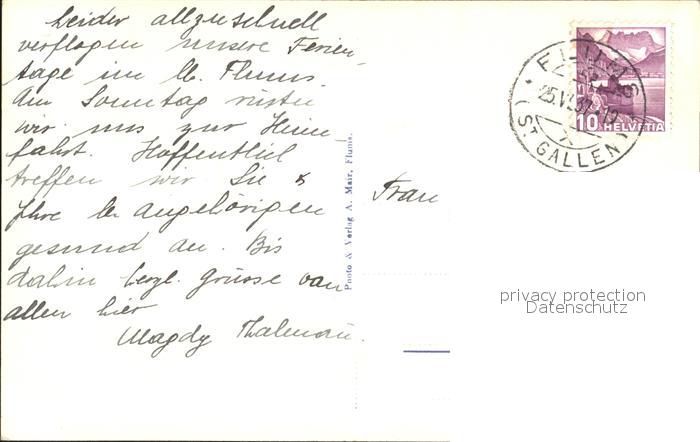 Leider allzuschnell
verflogen unsere Ferien-
tage im lb. Flums.
Am Sonntag rüsten
wir uns zur Heim
fahrt. Hoffentlich
treffen wir Sie &
Ihre lb. Angehörigen
gesund an. Bis
dahin herzl. Grüsse von
allen hier
Magdy
Photo & Verlag A. Mair, Flums.
Frau
FLUMS
(ST. GALLEN)
10 HELVETIA
privacy protection
Datenschutz